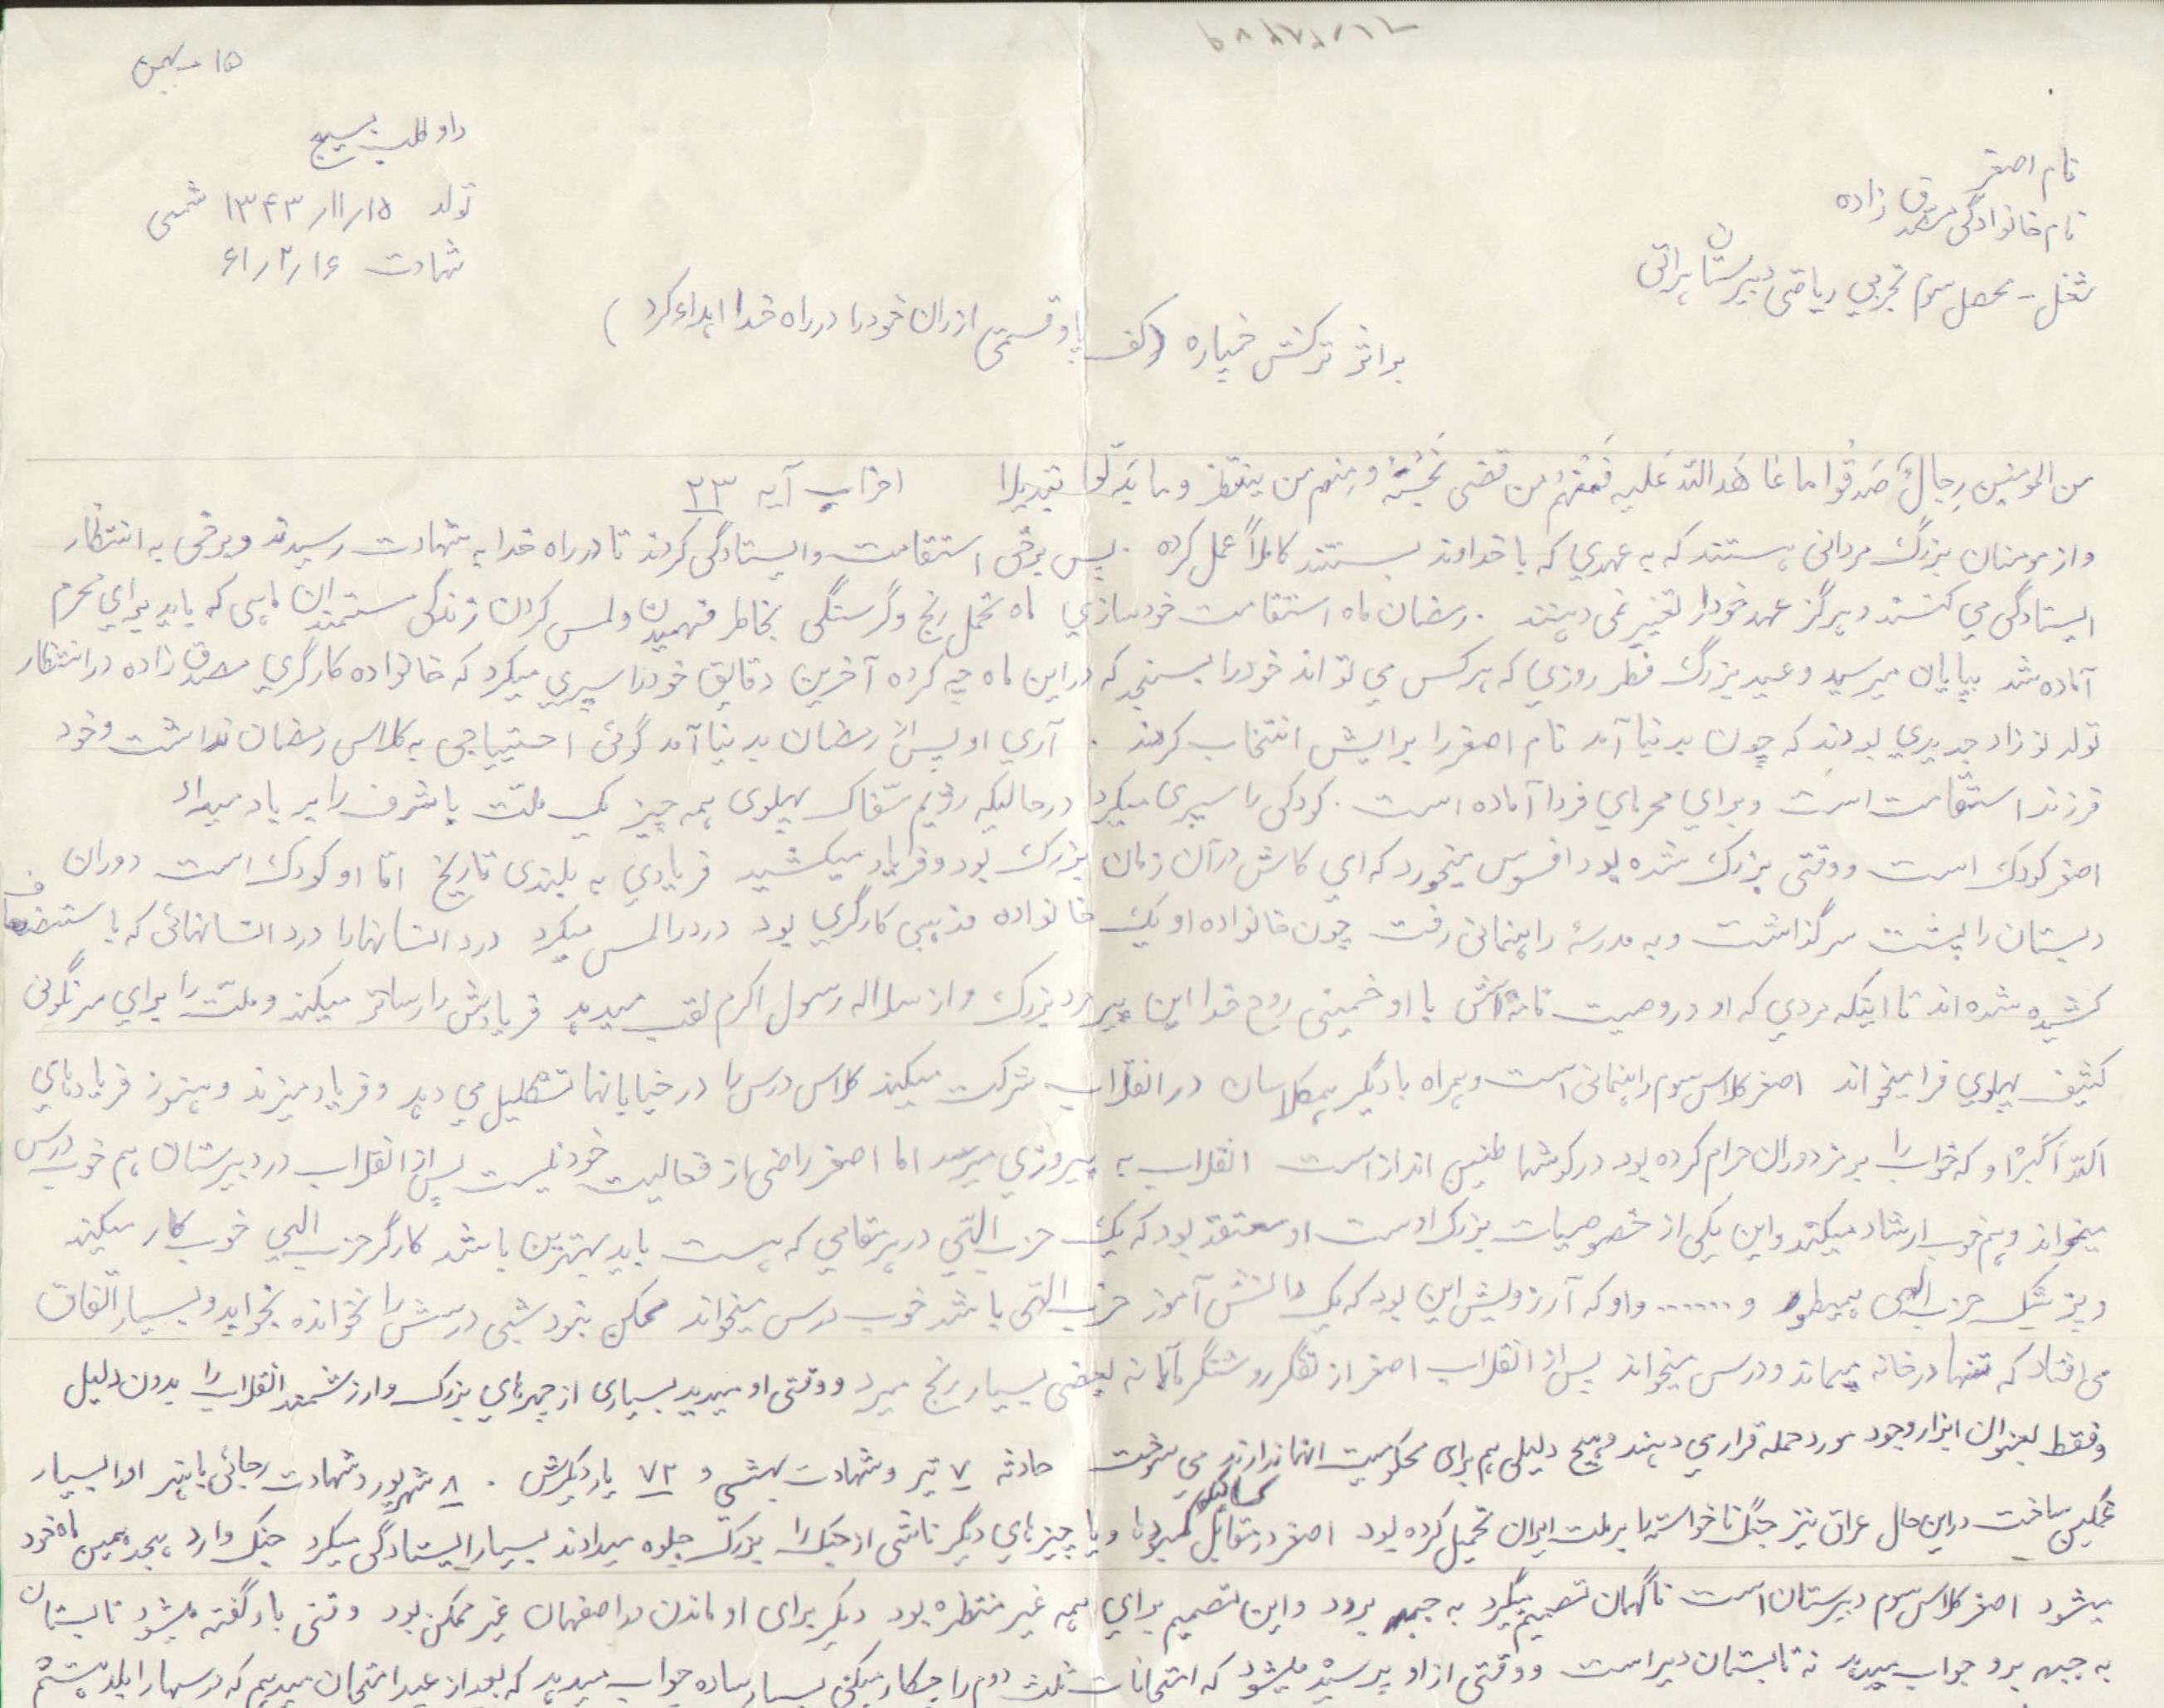 ۱۵ بهمن
داوطلب بسیج
تولد ۱۳۴۳/۱۱/۱۵ شمسی
شهادت ۶۱/۲/۱۶
نام اصغر
نام خانوادگی صدق زاده
شغل - محصل سوم تجربی ریاضی دبیرستان هراتی
بر اثر ترکش خمپاره (کف پا و قسمتی از ران خود را در راه خدا اهداء کرد)
من المومنین رجالٌ صَدقُوا ما عَا هَدالله عَلیه فَمنهُم من قضی نَحبَهُ و مِنهم من ینتظر و ما بَدّلُوا تبدیلا احزاب آیه ۲۳
و از مومنان بزرگ مردانی هستند که به عهدی که با خداوند بستند کاملاً عمل کرده . پس برخی استقامت و ایستادگی کردند تا در راه خدا به شهادت رسیدند و برخی به انتظار
ایستادگی می کنند و هرگز عهد خود را تغییر نمی دهند . رمضان ماه استقامت خودسازی ماه تحمل رنج و گرسنگی بخاطر فهمیدن و لمس کردن زندگی مستمندان ماهی که باید برای محرم
آماده شد بپایان میرسید و عید بزرگ فطر روزی که هر کس می تواند خود را بسنجد که در این ماه چه کرده آخرین دقایق خود را سپری میکرد که خانواده کارگری صدق زاده در انتظار
تولد نوزاد جدیدی بودند که چون بدنیا آمد نام اصغر را برایش انتخاب کردند . آری او پس از رمضان بدنیا آمد گوئی احتیاجی به کلاس رمضان نداشت و خود
فرزند استقامت است و برای محرمای فردا آماده است . کودکی را سپری میکرد در حالیکه رژیم سفّاک پهلوی همه چیز یک ملّت با شرف را بر باد میداد
اصغر کودک است و وقتی بزرگ شده بود افسوس میخورد که ای کاش در آن زمان بزرگ بود و فریاد میکشید فریادی به بلندی تاریخ امّا او کودک است دوران
دبستان را پشت سر گذاشت و به مدرسهٔ راهنمائی رفت چون خانواده او یک خانواده مذهبی کارگری بود درد را لمس میکرد درد انسانها را درد انسانهائی که با ستضعاف
کشیده شده اند تا اینکه مردی که او در وصیت نامه اش با او خمینی روح خدا این پیر مرد بزرگ و از سلاله رسول اکرم لقب میدهد فریادش را رساتر میکند و ملّت را برای سرنگونی
کثیف پهلوی فرا میخواند اصغر کلاس سوم راهنمائی است و همراه با دیگر همکلاسان در انقلاب شرکت میکند کلاس درس را در خیابانها تشکیل می دهد و فریاد میزند و هنوز فریادهای
الله اکبر او که خواب را بر مزدوران حرام کرده بود در گوشها طنین انداز است انقلاب به پیروزی میرسد اما اصغر راضی از فعالیت خود نیست پس از انقلاب در دبیرستان هم خوب درس
میخواند و هم خوب ارشاد میکند و این یکی از خصوصیات بزرگ اوست او معتقد بود که یک حزب اللّهی در هر مقامی که هست باید بهترین باشد کارگر حزب الهی خوب کار میکند
و پزشک حزب الهی همینطور و ...... و او که آرزویش این بود که یک دانش آموز حزب اللهی باشد خوب درس میخواند ممکن نبود شبی درسش را نخوانده بخوابد و بسیار اتفاق
می افتاد که تنها در خانه بماند و درس میخواند پس از انقلاب اصغر از تفکر روشنگرمآبانه بعضی بسیار رنج میبرد و وقتی او میدید بسیاری از چهرهای بزرگ و ارزشمند انقلاب را بدون دلیل
و فقط بعنوان ابراز وجود مورد حمله قرار می دهند و هیچ دلیلی هم برای محکومیت آنها ندارند می سوخت حادثه ۷ تیر و شهادت بهشتی و ۷۲ یار دیگرش . ۸ شهریور و شهادت رجائی باهنر او را بسیار
غمگین ساخت در این حال عراق نیز جنگ ناخواسته را بر ملت ایران تحمیل کرده بود اصغر در مقابل کسانیکه کمبودها و یا چیزهای دیگر ناشی از جنگ را بزرگ جلوه میدادند بسیار ایستادگی میکرد جنگ وارد هجدهمین ماه خود
میشود اصغر کلاس سوم دبیرستان است ناگهان تصمیم میگیرد به جبهه برود و این تصمیم برای همه غیر منتظره بود دیگر برای او ماندن در اصفهان غیر ممکن بود وقتی باو گفته میشود تابستان
به جبهه برو جواب میدهد نه تابستان دیر است و وقتی از او پرسیده میشود که امتحانات ثلث دوم را چکار میکنی بسیار ساده جواب میدهد که بعد از عید امتحان میدهم که درسها را بلد هستم